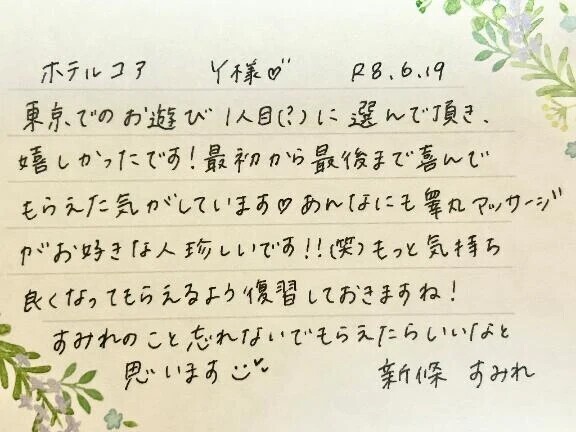 ホテルコア Y様♡ R8.6.19
東京でのお遊び1人目(?)に選んで頂き、
嬉しかったです!最初から最後まで喜んで
もらえた気がしています♡あんなにも睾丸マッサージ
がお好きな人珍しいです!!(笑)もっと気持ち
良くなってもらえるよう復習しておきますね!
すみれのこと忘れないでもらえたらいいなと
思います
新條 すみれ